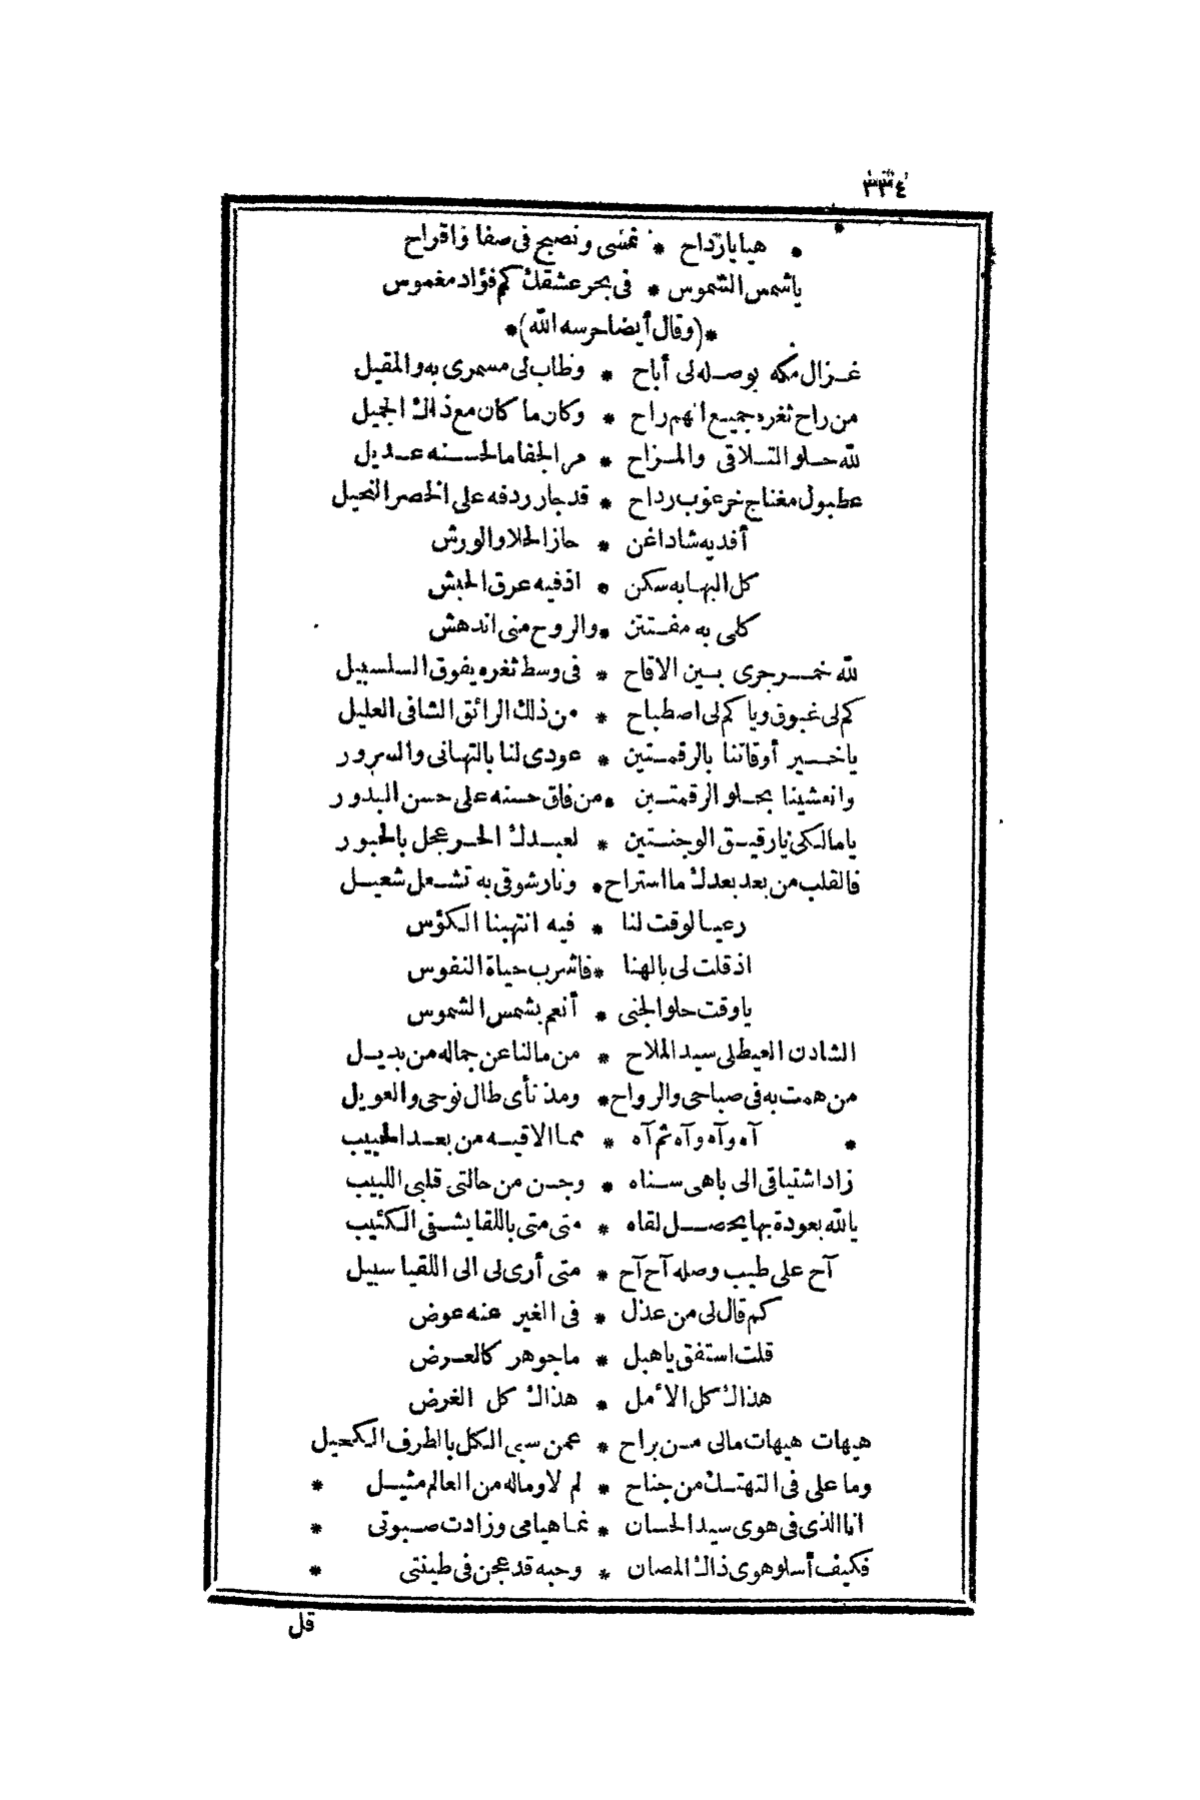 ٣٣٤
* هيا يارداح * نمسى ونصبح فى صفا وافراح
ياشمس الشموس * فى بحر عشقك كم فؤاد مغموس
*(وقال أيضا حرسه الله)*
غزال مكه بوصله لى أباح * وطاب لى مسمرى به والمقيل
من راح ثغره جميع الهم راح * وكان ما كان مع ذاك الجميل
لله حلو التلاقى والمزاح * مر الجفا مالحسنه عديل
عطبول مغناج خرعوب رداح * قد جار ردفه على الخصر النحيل
أفديه شاداغن * حاز الحلا والورش
كل البها به سكن * اذ فيه عرق الحبش
كلى به مفتتن * والروح منى اندهش
لله خمر جرى بين الاقاح * فى وسط ثغره يفوق السلسبيل
كم لى غبوق ويا كم لى اصطباح * من ذلك الرائق الشافى العليل
ياخير أوقاتنا بالرقمتين * عودى لنا بالتهانى والسرور
وانعشينا بحلو الرقمتين * من فاق حسنه على حسن البدور
يامالكى يارقيق الوجنتين * لعبدك الحر عجل بالحبور
فالقلب من بعد بعدك ما استراح * ونار شوقى به تشعل شعيل
رعيا لوقت لنا * فيه انتهبنا الكؤس
اذ قلت لى بالهنا * فاشرب حياة النفوس
ياوقت حلو الجنى * أنعم بشمس الشموس
الشادن العيطلى سيد الملاح * من مالنا عن جماله من بديل
من همت به فى صباحى والرواح * ومذ نأى طال نوحى والعويل
* آه وآه وآه ثم آه * مما الاقيه من بعد الحبيب
زاد اشتياقى الى باهى سناه * وجن من حالتى قلبى اللبيب
يالله بعودة بها يحصل لقاه * متى متى باللقا يشفى الكئيب
آح على طيب وصله آح آح * متى أرى لى الى اللقيا سبيل
كم قال لى من عذل * فى الغير عنه عوض
قلت استفق ياهبل * ماجوهر كالعرض
هذاك كل الأمل * هذاك كل الغرض
هيهات هيهات مالى من براح * عمن سبى الكل بالطرف الكحيل
وما على فى التهتك من جناح * لم لا وماله من العالم مثيل *
انا الذى فى هوى سيد الحسان * نما هيامى وزادت صبوتى *
فكيف أسلو هوى ذاك المصان * وحبه قد عجن فى طينتى *
قل